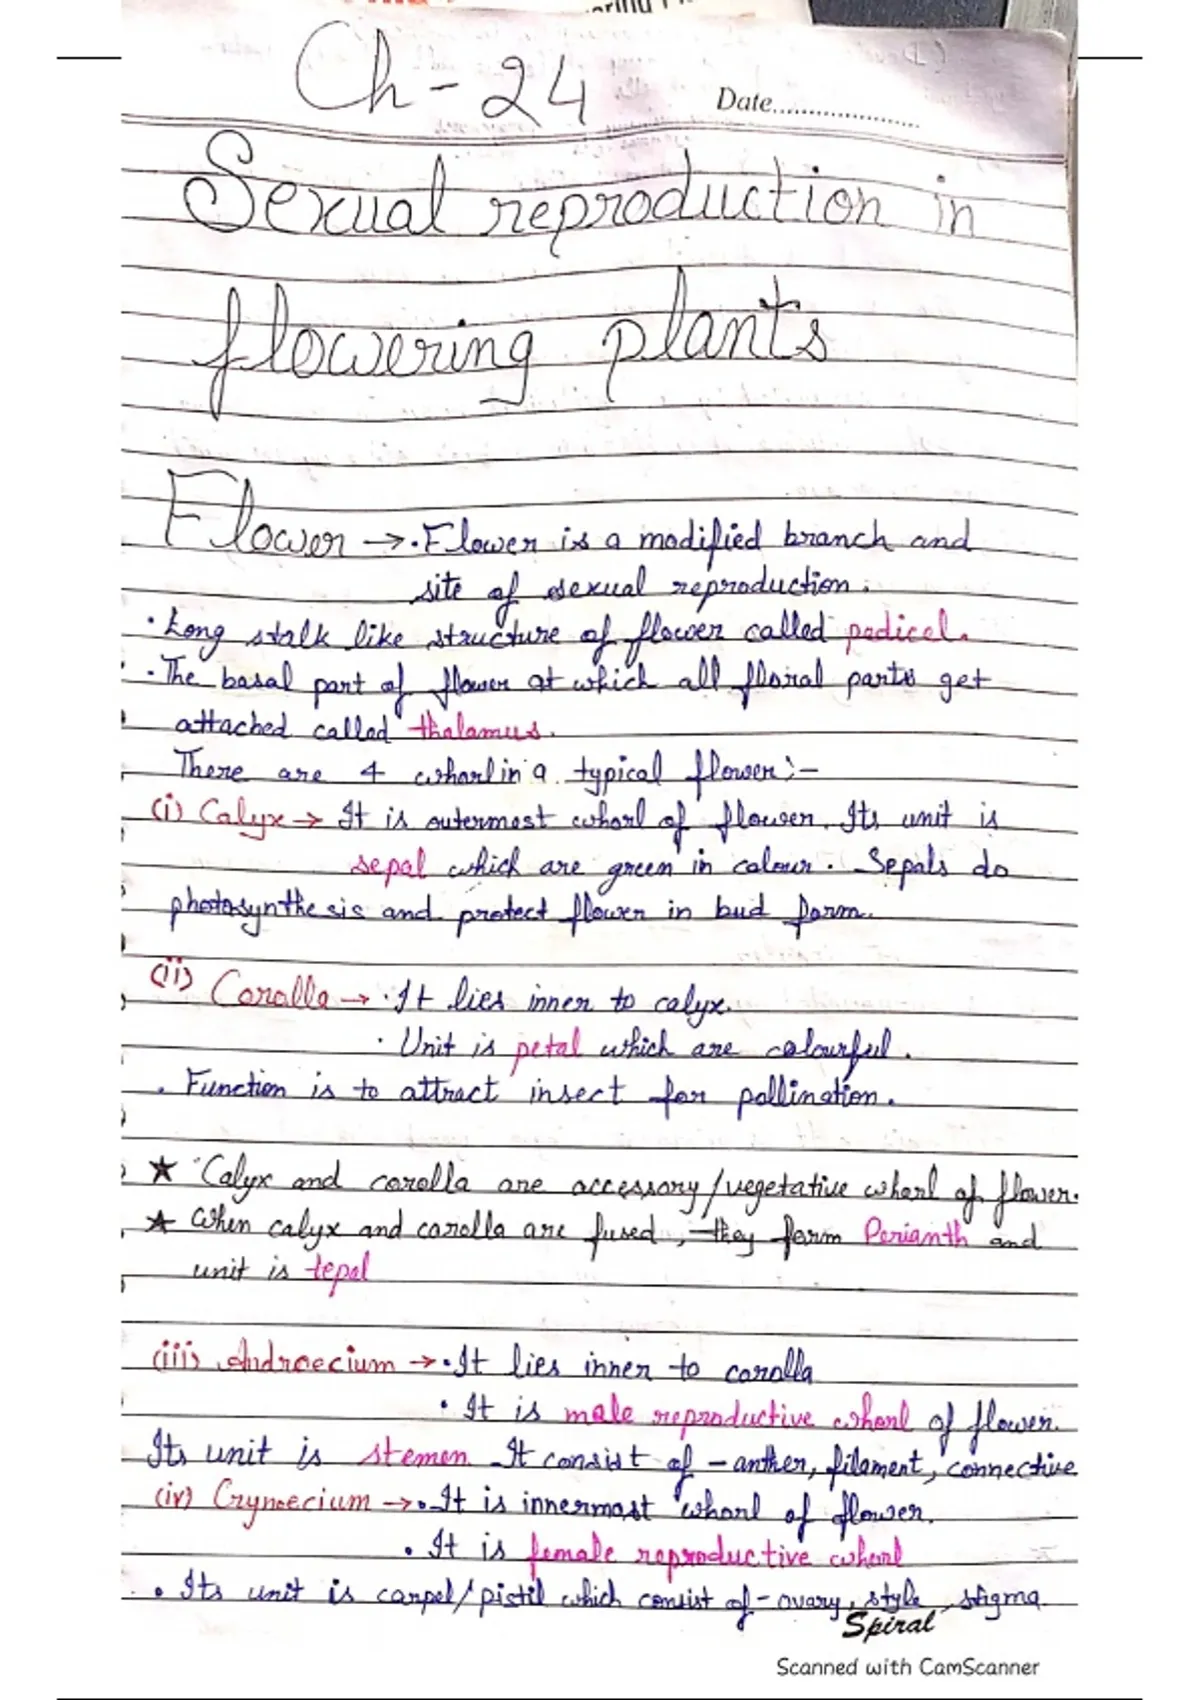 Ch-24
Date
Sexual reproduction in
flowering plants
Flower → • Flower is a modified branch and
site of sexual reproduction.
• Long stalk like structure of flower called pedicel.
• The basal part of flower at which all floral parts get
attached called thalamus.
There are 4 whorl in a typical flower:-
(i) Calyx → It is outermost whorl of flower. Its unit is
sepal which are green in colour. Sepals do
photosynthesis and protect flower in bud form.
(ii) Corolla → • It lies inner to calyx.
• Unit is petal which are colourful.
• Function is to attract insect for pollination.
★ Calyx and corolla are accessory/vegetative whorl of flower.
★ When calyx and corolla are fused, they form Perianth and
unit is tepal
(iii) Androecium → • It lies inner to corolla
• It is male reproductive whorl of flower.
Its unit is stemen. It consist of - anther, filament, connective
(iv) Gynoecium → • It is innermost whorl of flower.
• It is female reproductive whorl
• Its unit is carpel/pistil which consist of - ovary, style, stigma
Spiral
Scanned with CamScanner